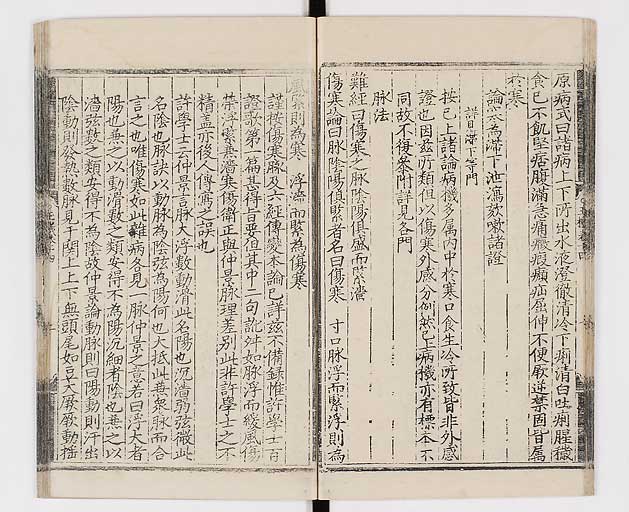 原病式曰諸病上下所出水液澄徹清冷下痢清白吐痢腥穢
食已不飢堅痞腹滿急痛癥瘕㿗疝屈伸不便厥逆禁固皆屬
於寒
論寒為滯下泄瀉欬嗽諸證
詳見滯下等門
按已上諸論病機多屬內中於寒口食生冷所致皆非外感
證也因其所類但以傷寒外感分例然上病機亦有標本不
同故不復參附詳見各門
脉法
難經曰傷寒之脉陰陽俱盛而緊濇
傷寒論曰脉陰陽俱緊者名曰傷寒 寸口脉浮而緊浮則為
風緊則為寒 浮濇而緊為傷寒
謹按傷寒脉及六經傳變本論已詳茲不備錄惟許學士百
證歌第一篇甚得旨要但其中二句訛舛如脉浮而緩風傷
榮浮緊兼濇寒傷衛正與仲景脉理差別此非許學士之不
精盖亦後人傳寫之誤也
許學士云仲景言脉大浮數動滑此名陽也沉濇弱弦微此
名陰也脉訣以動脉為陰弦為陽何也大抵此兼衆脉而合
言之也唯傷寒如此雜病各見一脉仲景之意若曰浮大者
陽也兼之以動滑數之類安得不為陽沉細者陰也兼之以
濇弦數之類安得不為陰故仲景論動脉則曰陽動則汗出
陰動則發熱數脉見于関上上下無頭尾如豆大厥厥動揺